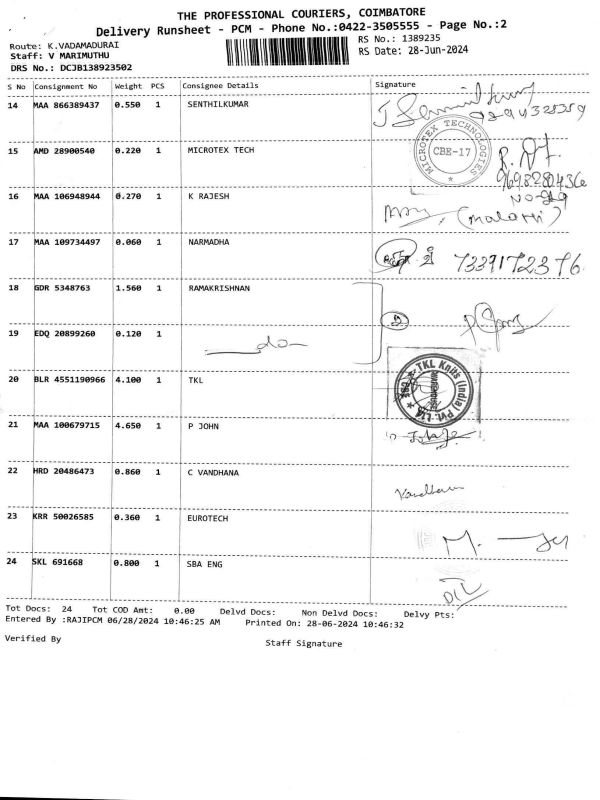 THE PROFESSIONAL COURIERS, COIMBATORE
Delivery Runsheet - PCM - Phone No.:0422-3505555 - Page No.:2
Route: K.VADAMADURAI
RS No.: 1389235
Staff: V MARIMUTHU
RS Date: 28-Jun-2024
DRS No.: DCJB138923502
S No Consignment No Weight PCS Consignee Details Signature
14 MAA 866389437 0.550 1 SENTHILKUMAR
15 AMD 28900540 0.220 1 MICROTEX TECH
MICROTEX TECHNOLOGIES
CBE-17
9698280436
16 MAA 106948944 0.270 1 K RAJESH
(Malathi)
17 MAA 109734497 0.060 1 NARMADHA
7339172376
18 GDR 5348763 1.560 1 RAMAKRISHNAN
2
19 EDQ 20899260 0.120 1
do
20 BLR 4551190966 4.100 1 TKL
TKL Knits (India) Pvt. Ltd
21 MAA 100679715 4.650 1 P JOHN
22 HRD 20486473 0.860 1 C VANDHANA
Vandhana
23 KRR 50026585 0.360 1 EUROTECH
24 SKL 691668 0.800 1 SBA ENG
Tot Docs: 24 Tot COD Amt: 0.00 Delvd Docs: Non Delvd Docs: Delvy Pts:
Entered By :RAJIPCM 06/28/2024 10:46:25 AM Printed On: 28-06-2024 10:46:32
Verified By
Staff Signature